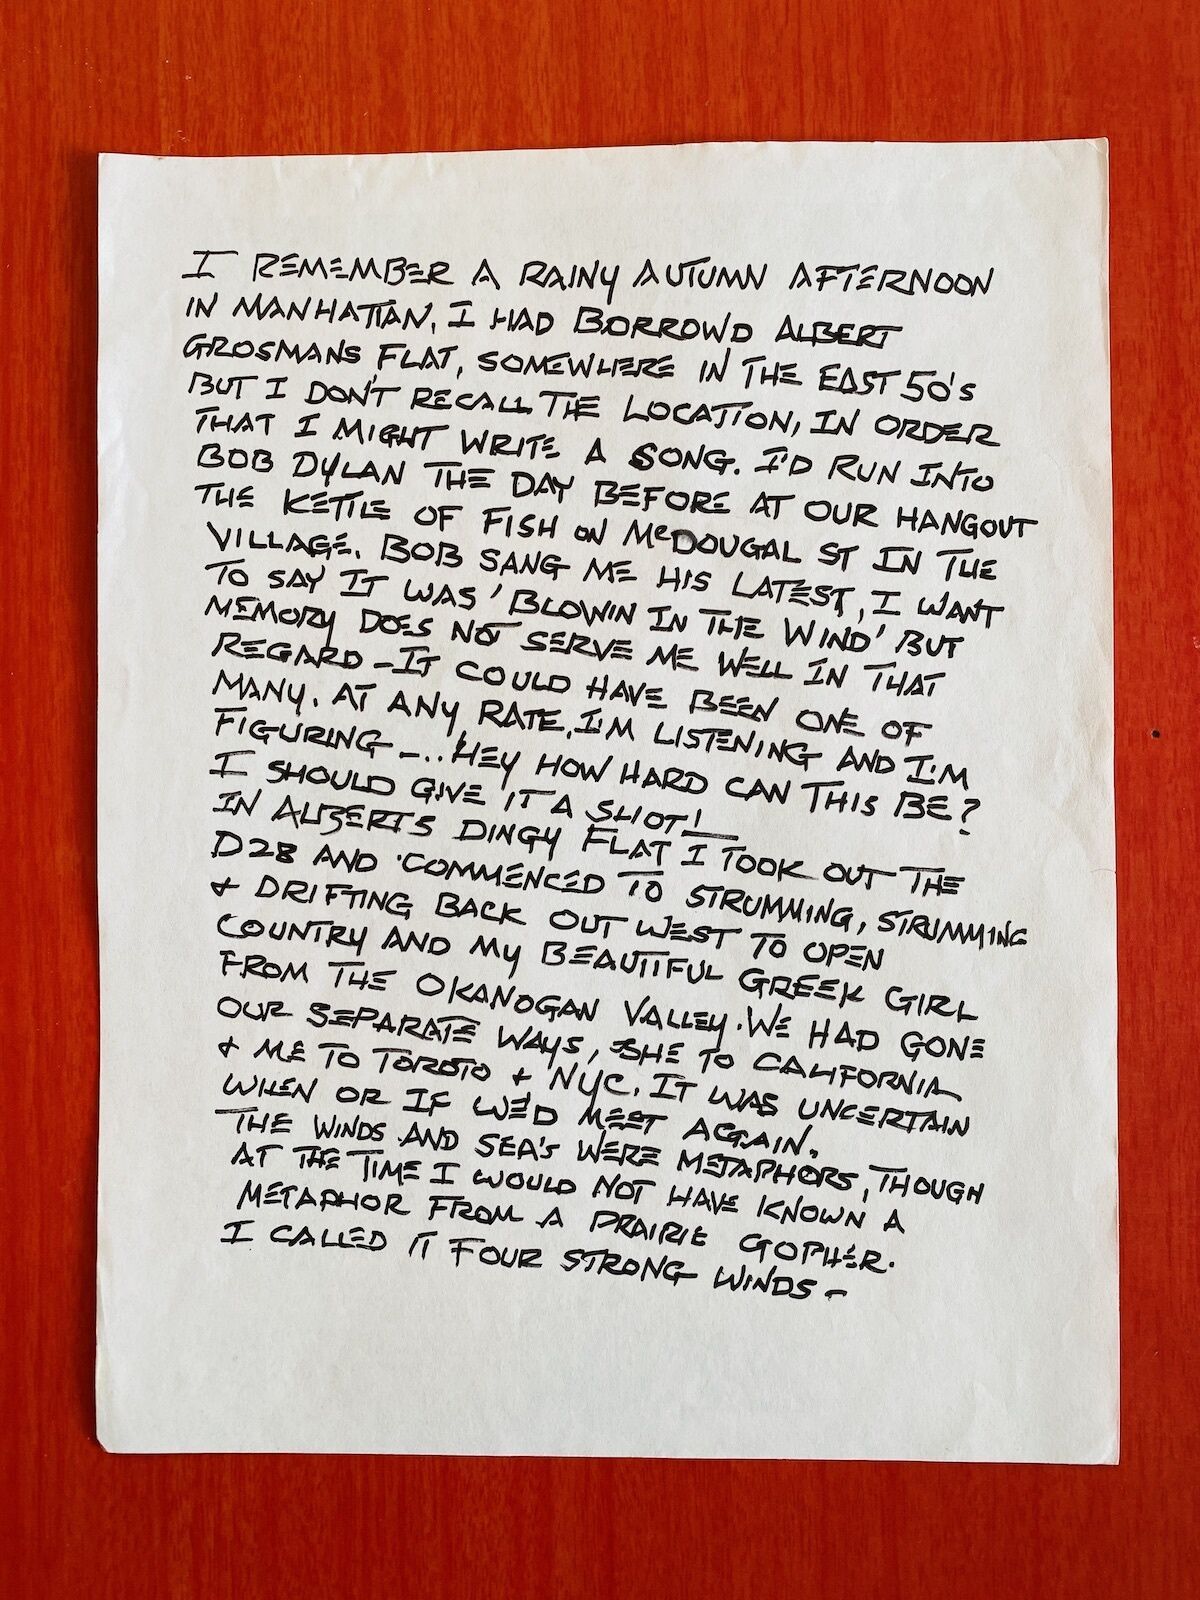 I REMEMBER A RAINY AUTUMN AFTERNOON
IN MANHATTAN. I HAD BORROWD ALBERT
GROSMANS FLAT, SOMEWHERE IN THE EAST 50'S
BUT I DON'T RECALL THE LOCATION, IN ORDER
THAT I MIGHT WRITE A SONG. I'D RUN INTO
BOB DYLAN THE DAY BEFORE AT OUR HANGOUT
THE KETTLE OF FISH ON McDOUGAL ST IN THE
VILLAGE. BOB SANG ME HIS LATEST, I WANT
TO SAY IT WAS 'BLOWIN IN THE WIND' BUT
MEMORY DOES NOT SERVE ME WELL IN THAT
REGARD - IT COULD HAVE BEEN ONE OF
MANY. AT ANY RATE, I'M LISTENING AND I'M
FIGURING -.. 'HEY HOW HARD CAN THIS BE?
I SHOULD GIVE IT A SHOT!
IN ALBERTS DINGY FLAT I TOOK OUT THE
D28 AND COMMENCED TO STRUMMING, STRUMMING
& DRIFTING BACK OUT WEST TO OPEN
COUNTRY AND MY BEAUTIFUL GREEK GIRL
FROM THE OKANOGAN VALLEY. WE HAD GONE
OUR SEPARATE WAYS, SHE TO CALIFORNIA
& ME TO TOROTO & NYC. IT WAS UNCERTAIN
WHEN OR IF WE'D MEET AGAIN.
THE WINDS AND SEA'S WERE METAPHORS, THOUGH
AT THE TIME I WOULD NOT HAVE KNOWN A
METAPHOR FROM A PRAIRIE GOPHER.
I CALLED IT FOUR STRONG WINDS -